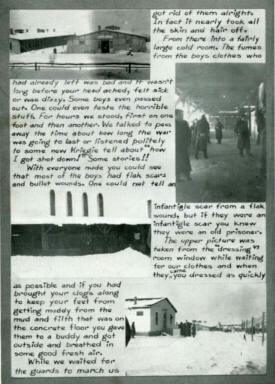 got rid of them alright.
In fact it nearly took all
the skin and hair off.
From there into a fairly
large cold room. The fumes
from the boys clothes who
had already left was bad and it wasn't
long before your head ached, felt sick
or was dizzy. Some boys even passed
out. One could even taste the horrible
stuff. For hours we stood, first on one
foot and then another. We talked to pass
away the time about how long the war
was going to last or listened politely
to some new Kriegie tell about "how
I got shot down!" Some stories!!
With everyone nude you could see
that most of the boys had flak scars
and bullet wounds. One could not tell an
infantigle scar from a flak
wound, but if they were an
infantigle scar you knew
they were an old prisoner.
The upper picture was
taken from the "dressing"
room window while waiting
for our clothes and when
they came you dressed as quickly
as possible and if you had
brought your clogs along
to keep your feet from
getting muddy from the
mud and filth that was on
the concrete floor you gave
them to a buddy and got
outside and breathed in
some good fresh air.
While we waited for
the guards to march us